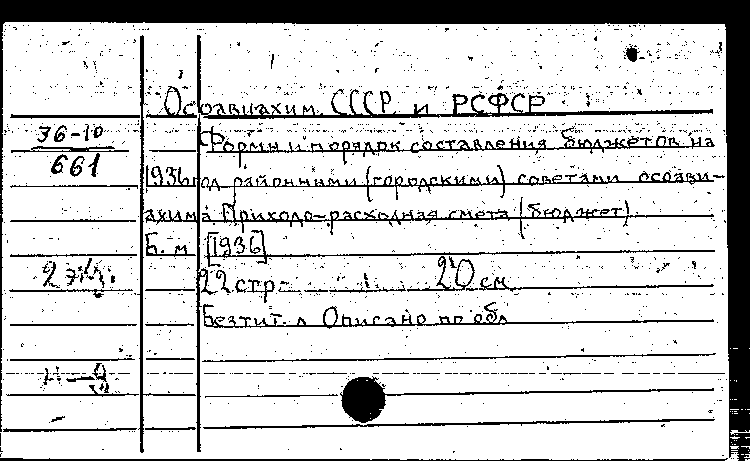 Осоавиахим СССР и РСФСР
36-10
661
Формы и порядок составления бюджетов на
1936 год районными (городскими) советами осоави-
ахима Приходо-расходная смета (бюджет)
Б. м. [1936]
2 экз.
22 стр. 20 см
Без тит. л Описано по обл